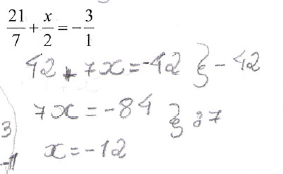 21/7 + x/2 = -3/1
42 + 7x = -42 } - 42
7x = -84 } : 7
3
x = -12
-1